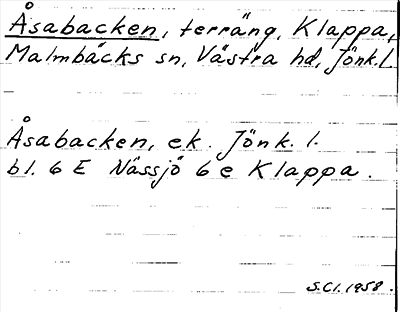 Åsabacken, terräng, Klappa,
Malmbäcks sn, Västra hd, Jönk.l.
Åsabacken, ek. Jönk. l.
bl. 6 E Nässjö 6 e Klappa.
S.Cl. 1958.